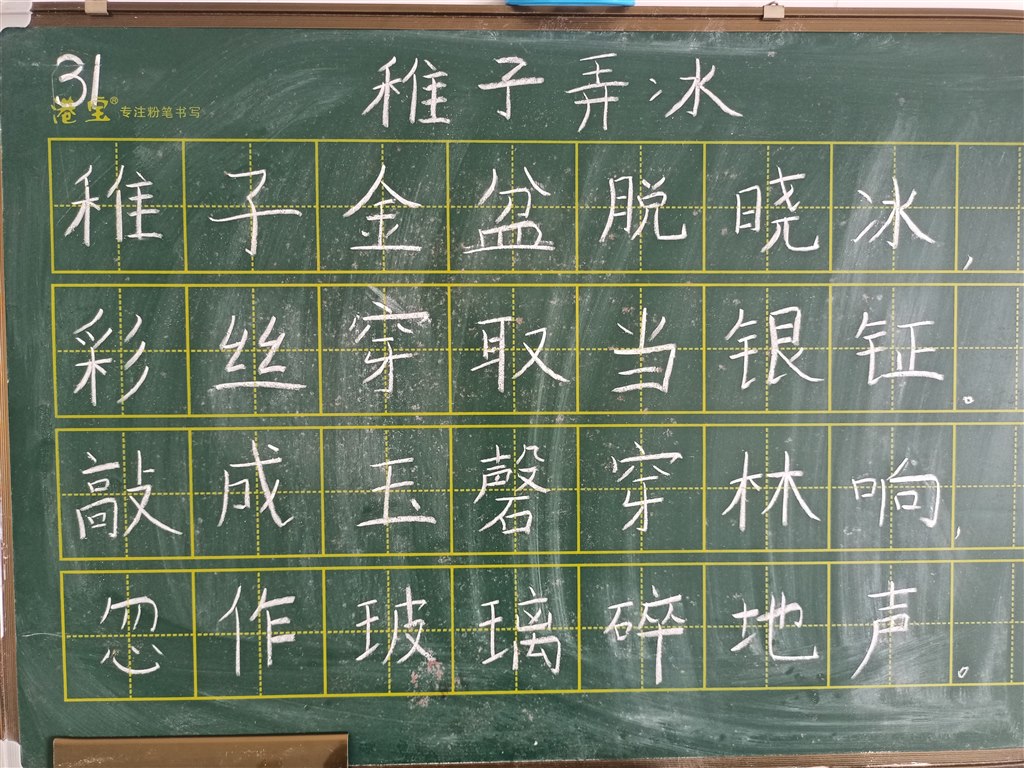 31
稚子弄冰
港宝® 专注粉笔书写
稚子金盆脱晓冰,
彩丝穿取当银钲。
敲成玉磬穿林响,
忽作玻璃碎地声。